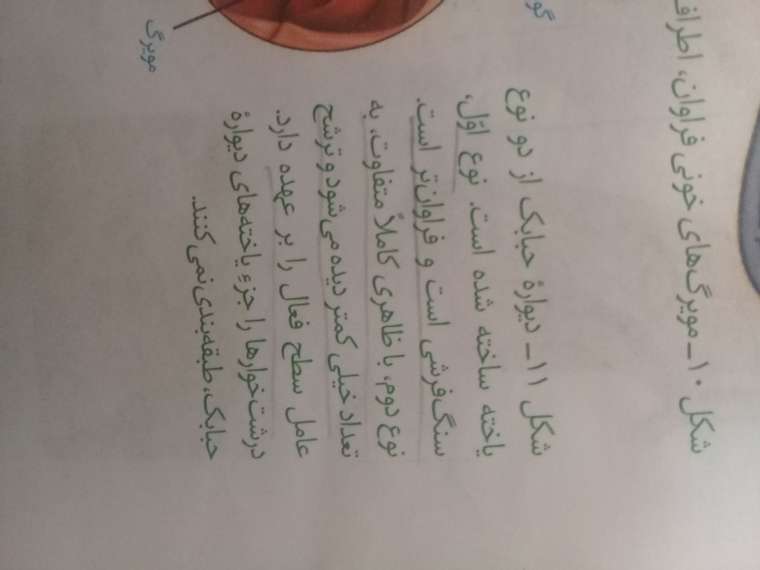 گو
مویرگ
شکل ۱۰ـ مویرگ‌های خونی فراوان، اطراف
شکل ۱۱ـ دیوارهٔ حبابک از دو نوع
یاخته ساخته شده است. نوع اوّل،
سنگ‌فرشی است و فراوان‌تر است.
نوع دوم، با ظاهری کاملاً متفاوت، به
تعداد خیلی کمتر دیده می‌شود و ترشح
عامل سطح فعال را بر عهده دارد.
درشت‌خوارها را جزء یاخته‌های دیوارهٔ
حبابک، طبقه‌بندی نمی‌کنند.